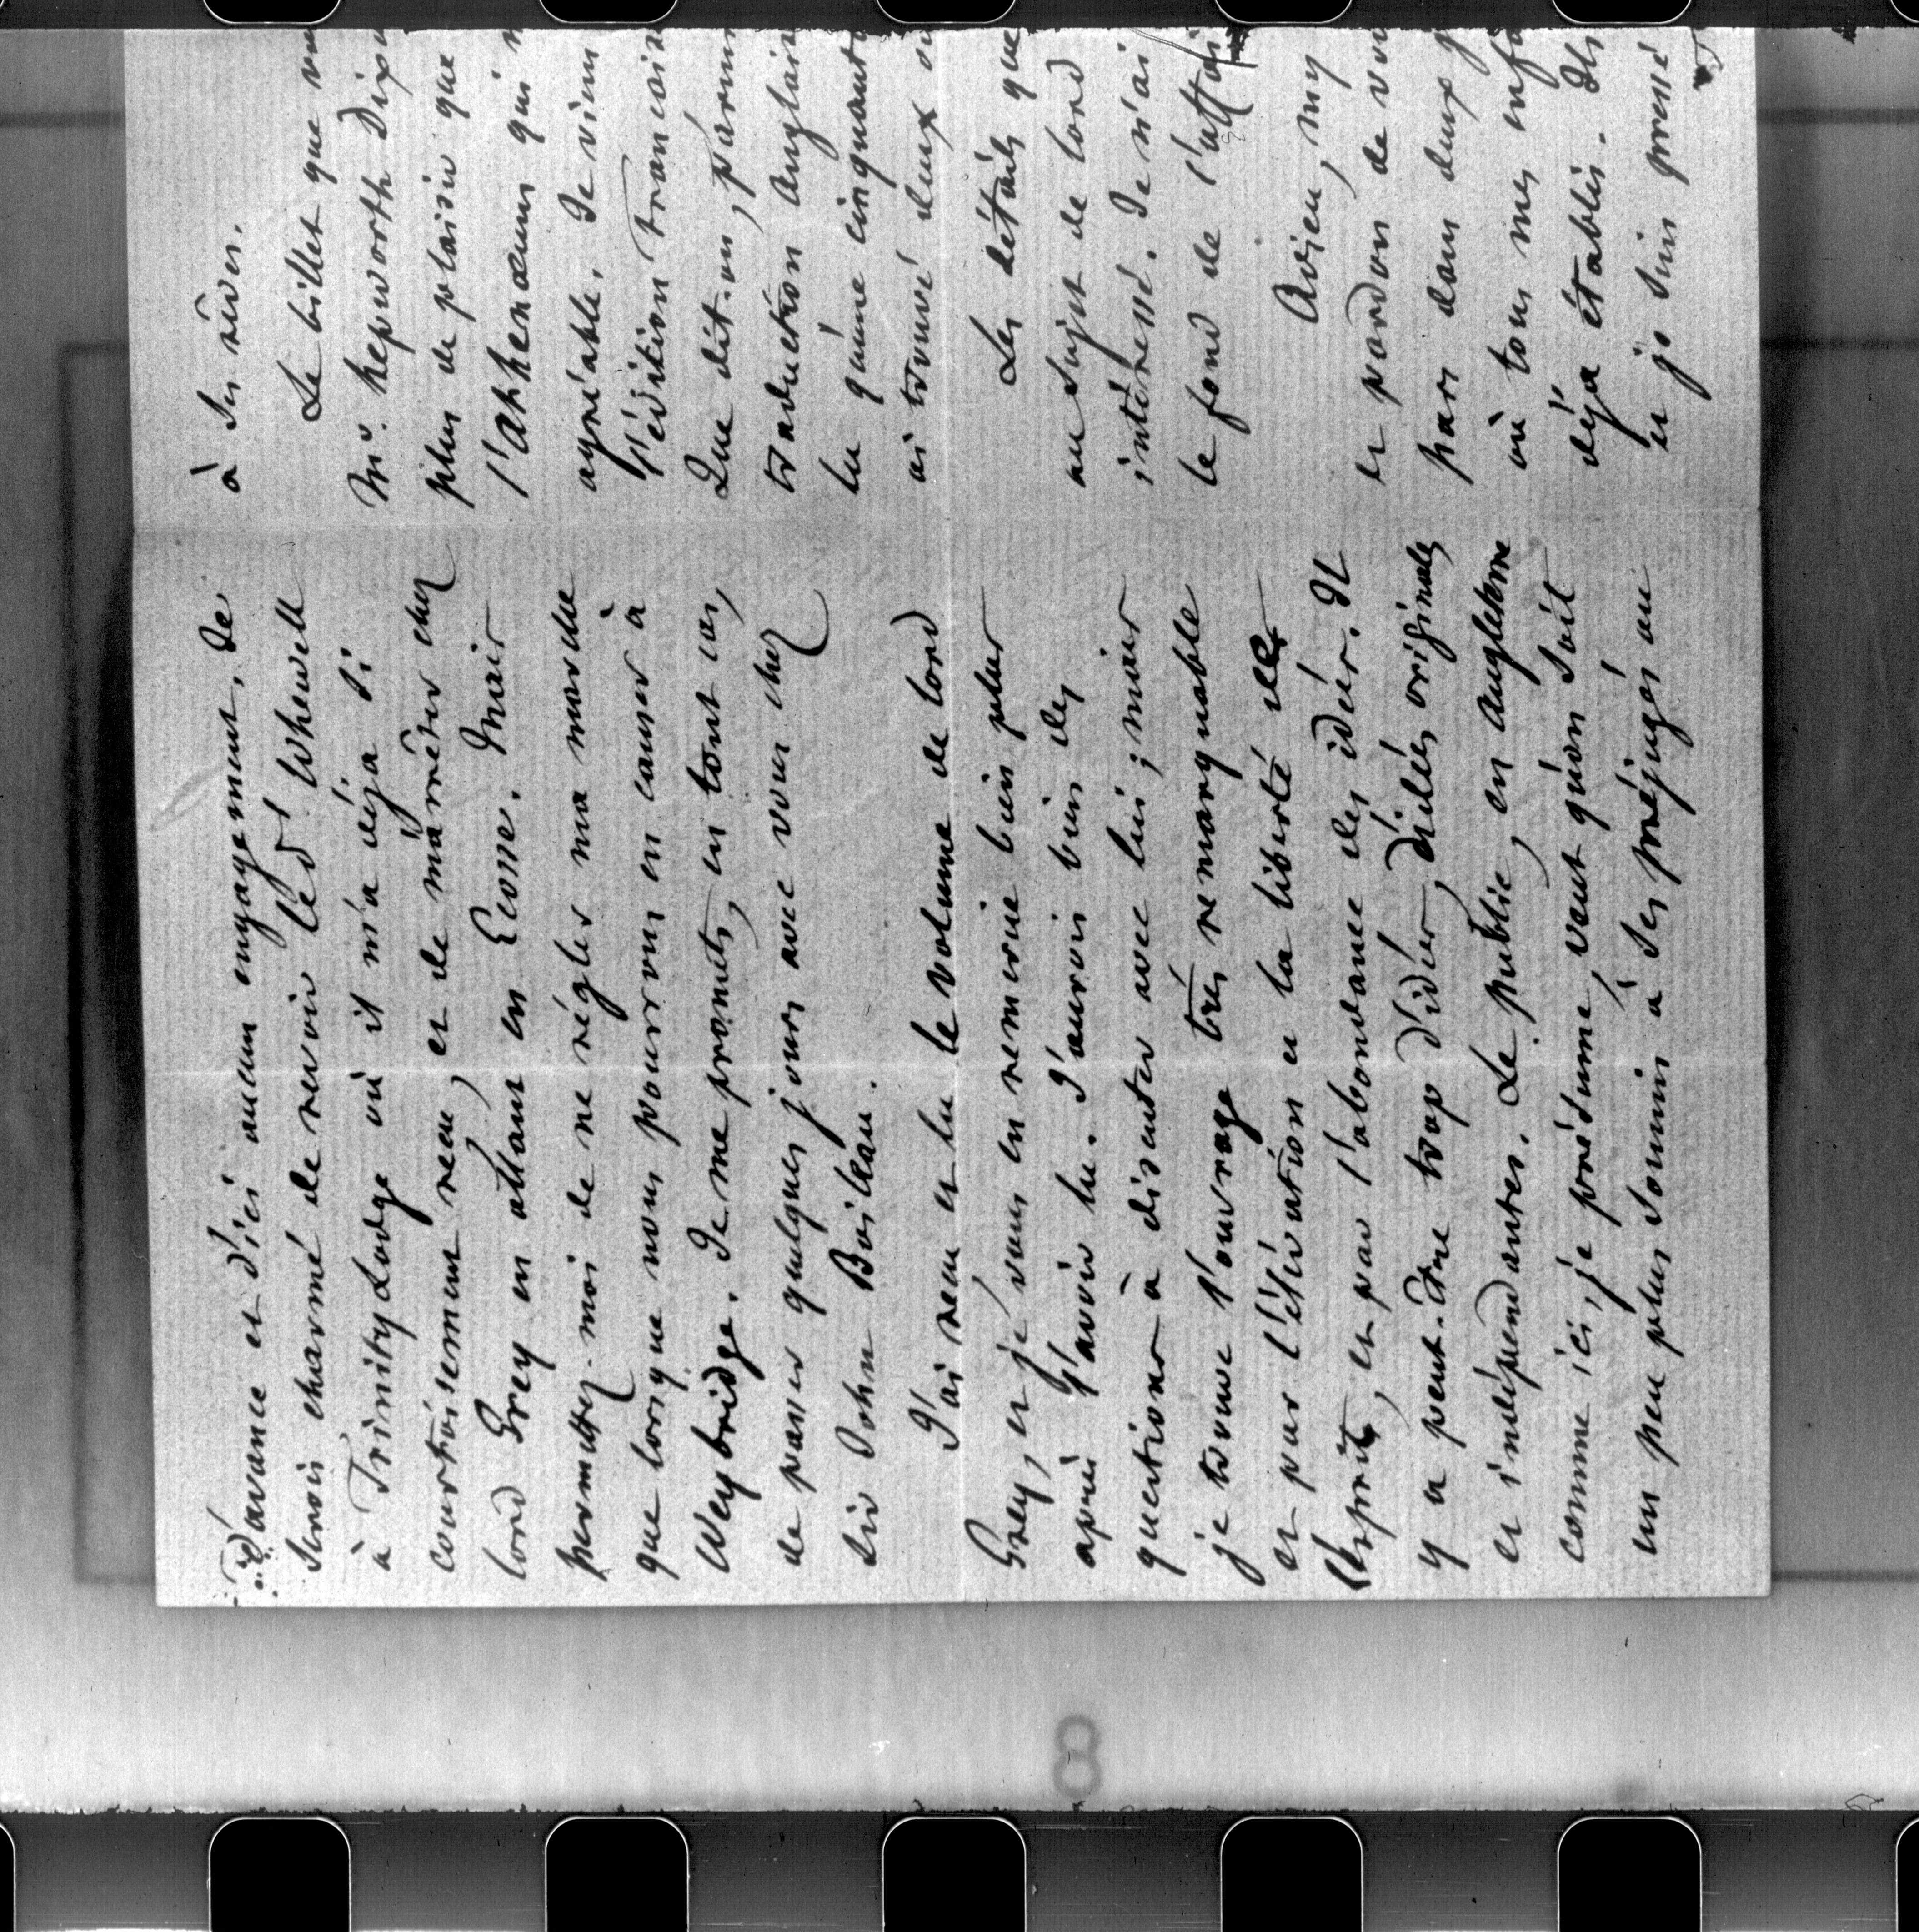 d'avance et d'ici aucun engagement. Je
serois charmé de revoir le Dr Whewell
à Trinity Lodge où il m'a déja si
courtoisement reçu, et de m'arrêter chez
lord Grey en allant en Ecosse. Mais
permettez-moi de ne régler ma marche
que lorsque nous pourrons en causer à
Weybridge. Je me promets, en tout cas,
de passer quelques jours avec vous chez
Sir John Boileau.
J'ai reçu et lu le volume de lord
Grey, et je vous en remercie bien plus
après l'avoir lu. J'aurois bien des
questions à discuter avec lui ; mais
je trouve l'ouvrage très remarquable
et par l'élévation et la liberté de
l'esprit, et par l'abondance des idées. Il
y a peut-être trop d'idées, d'idées originales
et indépendantes. Le public, en Angleterre
comme ici, je présume, veut qu'on soit
un peu plus soumis à ses préjugés ou
à ses rêves.
Le billet que
Mr. Hepworth Dixon
plus de plaisir que
l'Athenaeum qui
agréable. Je viens
l'édition française
Que dit-on, parmi
traduction anglaise
lu qu'une cinquantaine
ai trouvé deux ou
Les détails que
au sujet de lord
intéressé. Je n'ai
le fond de l'affaire
Adieu, my
et pardon de
pars dans deux
où tous mes enfans
déja établis. Ils
et je suis pressé
8